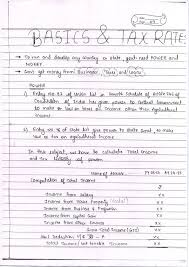 BASICS & TAX RATES
→ To run and develop any country or state, govt. need POWER and MONEY
→ Govt. get money from Business, Taxes and Loans
POWER
1) Entry No. 82 of Union list in Seventh Schedule of
Constitution of India has given power to Central Government
to make law on Taxes on Income other than Agricultural
Income.
2) Entry No. 46 of State list give power to State Govt. to make
law on tax on agricultural Income.
→ In this subject, we have to calculate Total Income
and Tax liability of person
Computation of Total Income
Income from Salary xx
Income from House Property xx
Income from Business & Profession xx
Income from Capital Gain xx
Income from Other Sources xx
Gross Total Income (GTI) xx
Total Income / Net Taxable Income xx